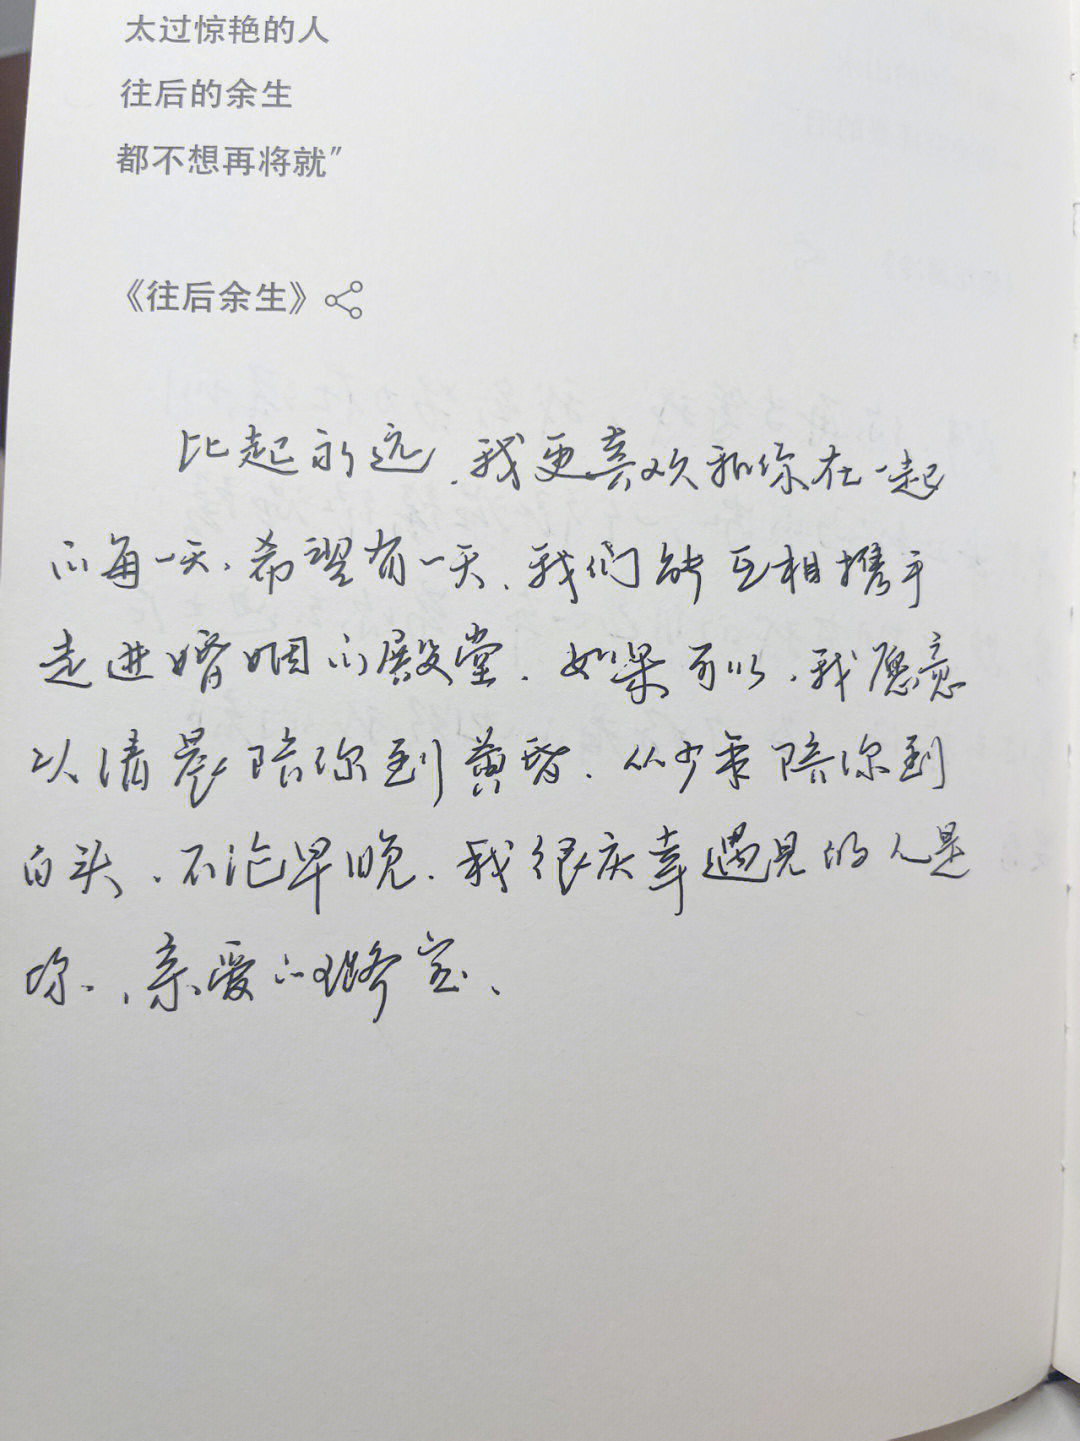 太过惊艳的人
往后的余生
都不想再将就”
《往后余生》
比起永远，我更喜欢和你在一起
的每一天，希望有一天，我们能互相携手
走进婚姻的殿堂，如果可以，我愿意
从清晨陪你到黄昏，从少年陪你到
白头，不论早晚，我很庆幸遇见的人是
你，亲爱的璐宝、